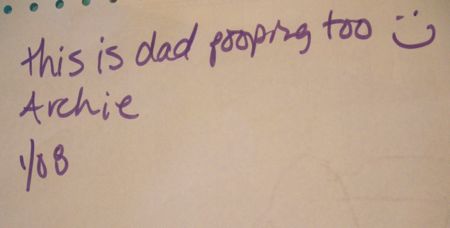 this is dad pooping too :)
Archie
1/08